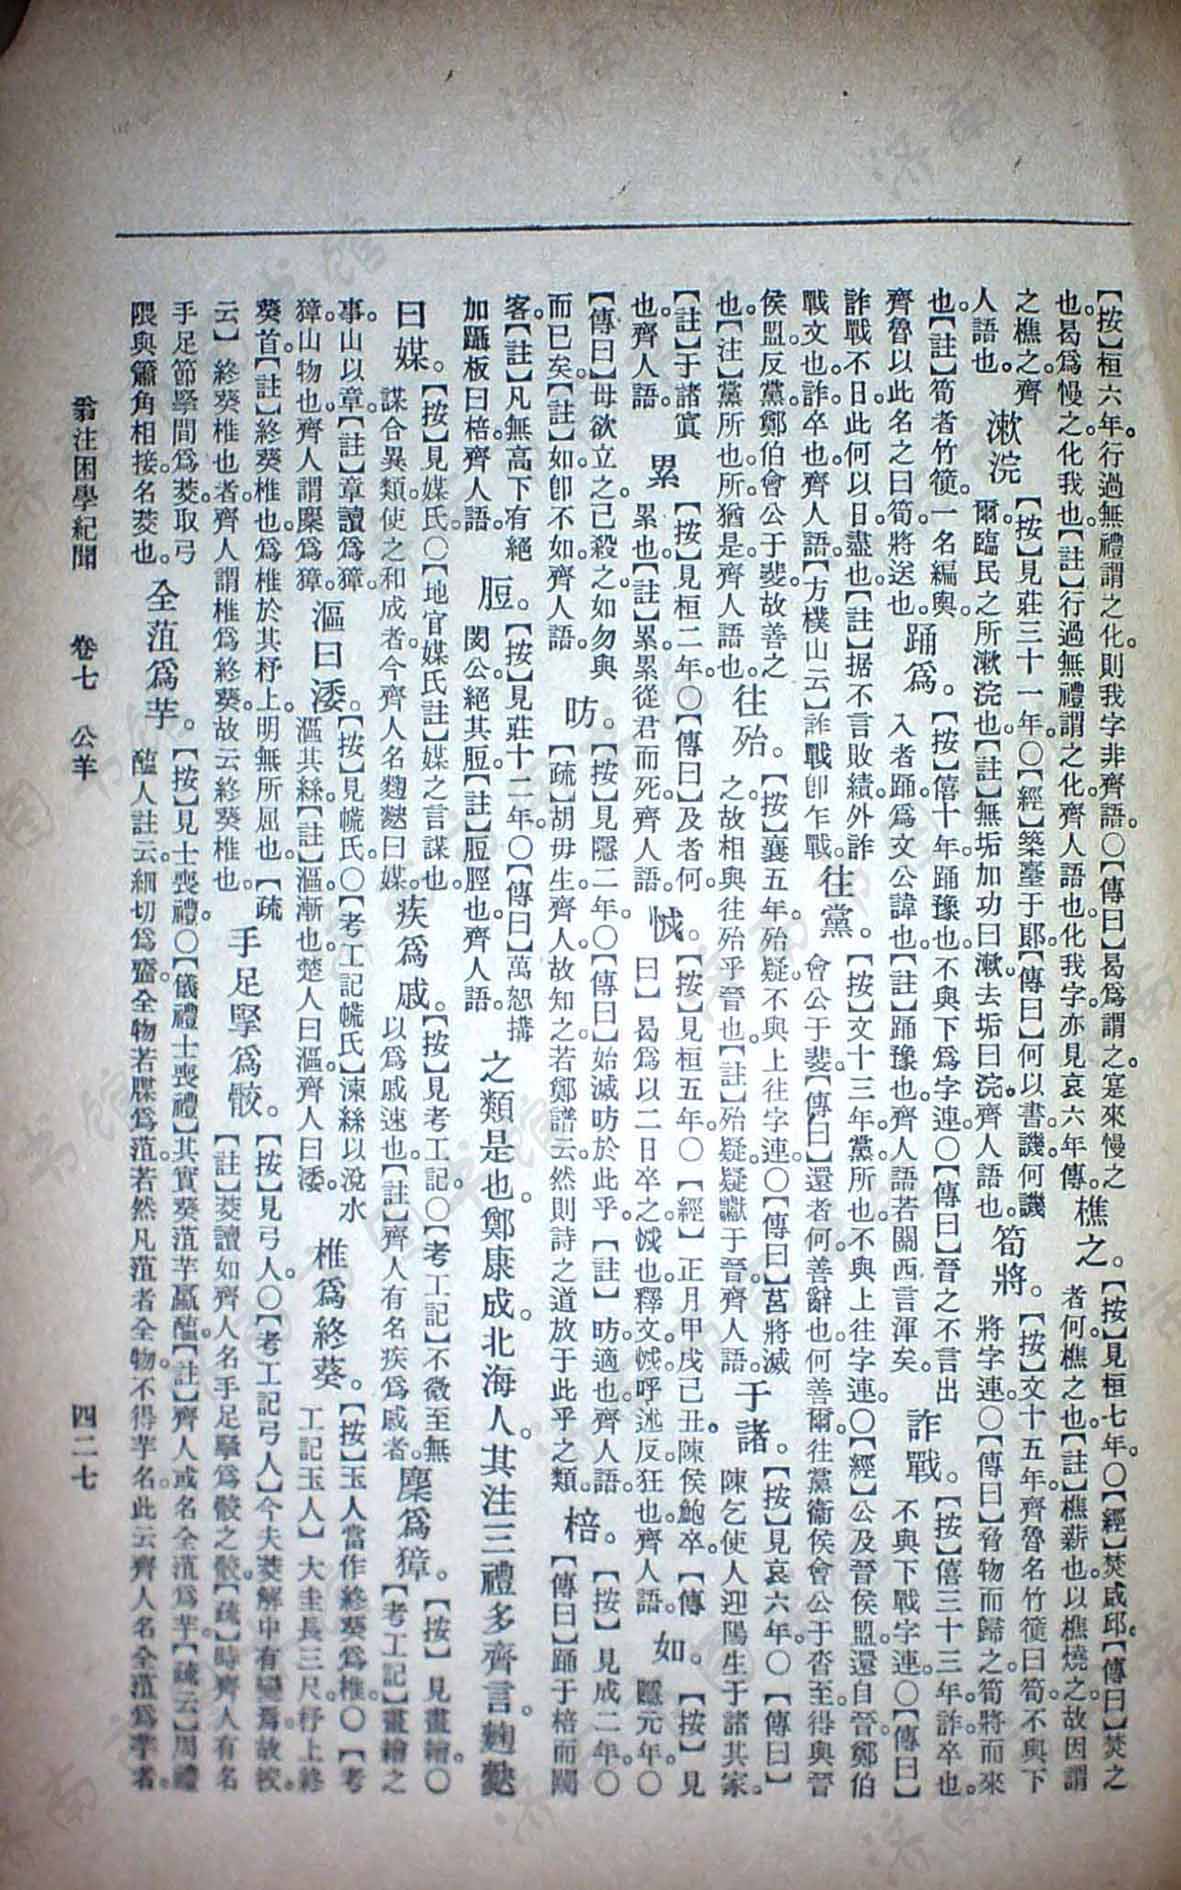 【按】桓六年。行過無禮謂之化。則我字非齊語。○【傳曰】曷爲謂之寔來慢之
也。曷爲慢之。化我也。【註】行過無禮。謂之化。齊人語也。化我字亦見哀六年傳。
樵之。
【按】見桓七年。○【經】焚咸邱。【傳曰】焚之
者何。樵之也。【註】樵薪也。以樵燒之。故因謂
之樵之。齊
人語也。
漱浣
【按】見莊三十一年。○【經】築臺于郎。【傳曰】何以書。譏何譏
爾。臨民之所漱浣也。【註】無垢加功曰漱。去垢曰浣。齊人語也。
筍將。
【按】文十五年。齊魯名竹箯曰筍。不與下
將字連。○【傳曰】脅物而歸之。筍將而來
也。【註】筍者竹箯。一名編輿。
齊魯以此名之曰筍。將送也。
踊爲。
【按】僖十年。踊豫也。不與下爲字連。○【傳曰】晉之不言出
入者踊。爲文公諱也。【註】踊豫也。齊人語。若關西言渾矣。
詐戰。
【按】僖三十三年。詐卒也。
不與下戰字連。○【傳曰】
詐戰不日。此何以日。盡也。【註】据不言敗績。外詐
戰文也。詐卒也。齊人語。【方樸山云】詐戰卽乍戰。
往黨。
【按】文十三年。黨所也。不與上往字連。○【經】公及晉侯盟。還自晉。鄭伯
會公于斐。【傳曰】還者何。善辭也。何善爾。往黨衞侯會公于沓。至得與晉
侯盟。反黨。鄭伯會公于斐。故善之
也。【注】黨所也。所猶是齊人語也。
往殆。
【按】襄五年。殆疑不與上往字連。○【傳曰】莒將滅
之。故相與往殆乎晉也。【註】殆疑。疑讞于晉。齊人語。
于諸。
【按】見哀六年。○【傳曰】
陳乞使人迎陽生于諸其家。
【註】于諸寘
也。齊人語。
累
【按】見桓二年。○【傳曰】及者何。
累也。【註】累累從君而死。齊人語。
怴。
【按】見桓五年。○【經】正月甲戌己丑。陳侯鮑卒。【傳
曰】曷爲以二日卒之。怴也。釋文。怴。呼述反。狂也。齊人語。
如。
【按】見
隱元年。○
【傳曰】毋欲立之。己殺之。如勿與
而已矣。【註】如。卽不如。齊人語。
昉。
【按】見隱二年。○【傳曰】始滅昉於此乎。【註】昉。適也。齊人語。
【疏】胡毋生。齊人。故知之。若鄭譜云。然則詩之道放于此乎之類。
棓。
【按】見成二年。○
【傳曰】踊于棓而闚
客。【註】凡無高下有絕
加躡板曰棓。齊人語。
脰。
【按】見莊十二年。○【傳曰】萬怒搏
閔公絕其脰。【註】脰。脛也。齊人語。
之類是也。鄭康成北海人。其注三禮多齊言。麴麩
曰媒。
【按】見媒氏。○【地官媒氏註】媒之言謀也。
謀合異類。使之和成者。今齊人名麴麩曰媒。
疾爲戚。
【按】見考工記。○【考工記】不微至無
以爲戚速也。【註】齊人有名疾爲戚者。
麇爲獐。
【按】見畫繢。○
【考工記】畫繢之
事。山以章。【註】章讀爲獐。
獐。山物也。齊人謂麇爲獐。
漚曰涹。
【按】見㡛氏。○【考工記㡛氏】湅絲以涗水
漚其絲。【註】漚。漸也。楚人曰漚。齊人曰涹。
椎爲終葵。
【按】玉人當作終葵爲椎。○【考
工記玉人】大圭長三尺。杼上終
葵首。【註】終葵椎也。爲椎於其杼上。明無所屈也。【疏
云】終葵椎也者。齊人謂椎爲終葵。故云終葵椎也。
手足掔爲骹。
【按】見弓人。○【考工記弓人】今夫茭解中有變焉。故挍。
【註】茭讀如齊人名手足掔爲骹之骹。【疏】時齊人有名
手足節掔間爲茭。取弓
隈與簫角相接。名茭也。
全菹爲芋。
【按】見士喪禮。○【儀禮士喪禮】其實葵菹芋蠃醢。【註】齊人或名全菹爲芋。【疏云】周禮
醢人註云。細切爲齏。全物若䐑爲菹。若然凡菹者全物。不得芋名。此云齊人名全菹爲芋者。
翁注困學紀聞
卷七 公羊
四二七